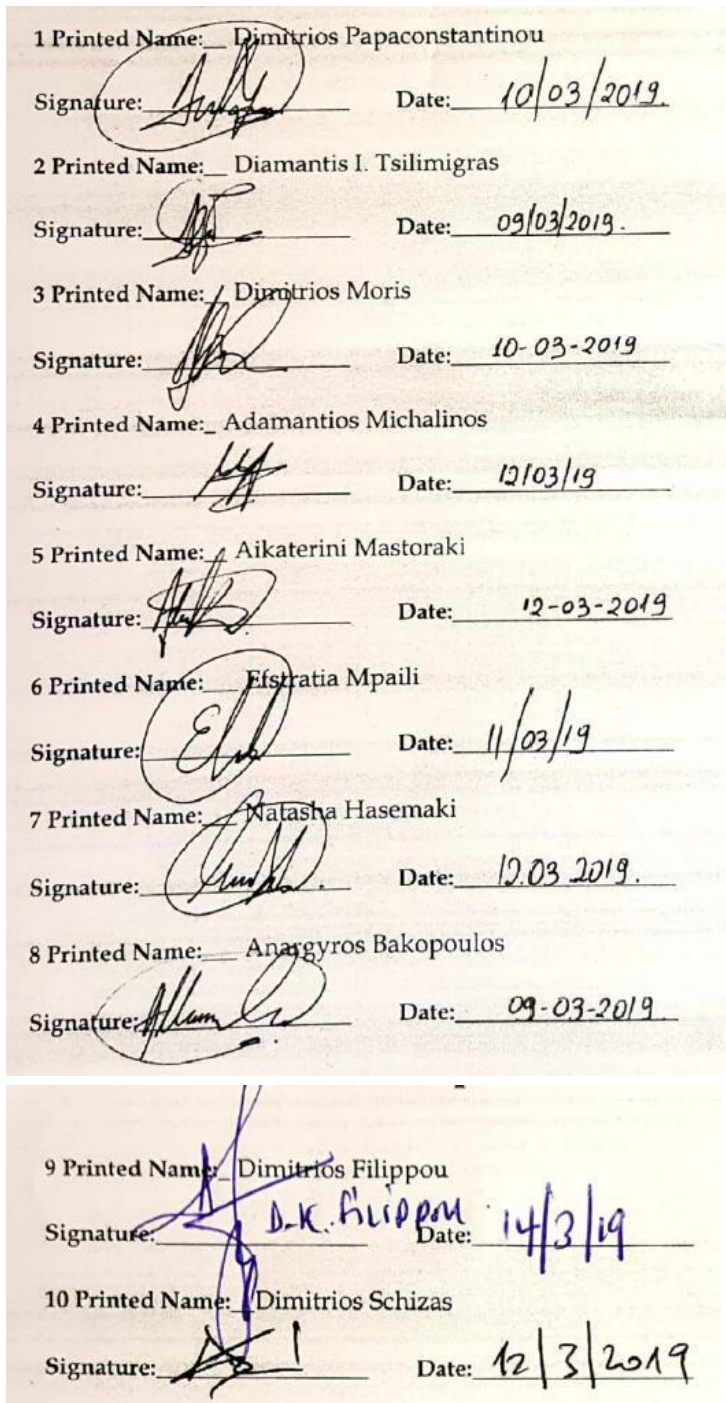 1 Printed Name:__ Dimitrios Papaconstantinou
Signature: Date: 10/03/2019.
2 Printed Name:__ Diamantis I. Tsilimigras
Signature: Date: 09/03/2019.
3 Printed Name:_ Dimitrios Moris
Signature: Date: 10-03-2019
4 Printed Name:_ Adamantios Michalinos
Signature: Date: 12/03/19
5 Printed Name:_ Aikaterini Mastoraki
Signature: Date: 12-03-2019
6 Printed Name:___ Efstratia Mpaili
Signature: Date: 11/03/19
7 Printed Name:___ Natasha Hasemaki
Signature: Date: 12.03.2019.
8 Printed Name:___ Anargyros Bakopoulos
Signature: Date: 09-03-2019
9 Printed Name:_ Dimitrios Filippou
Signature: D.K. FiLippou Date: 14/3/19
10 Printed Name:_ Dimitrios Schizas
Signature: Date: 12/3/2019